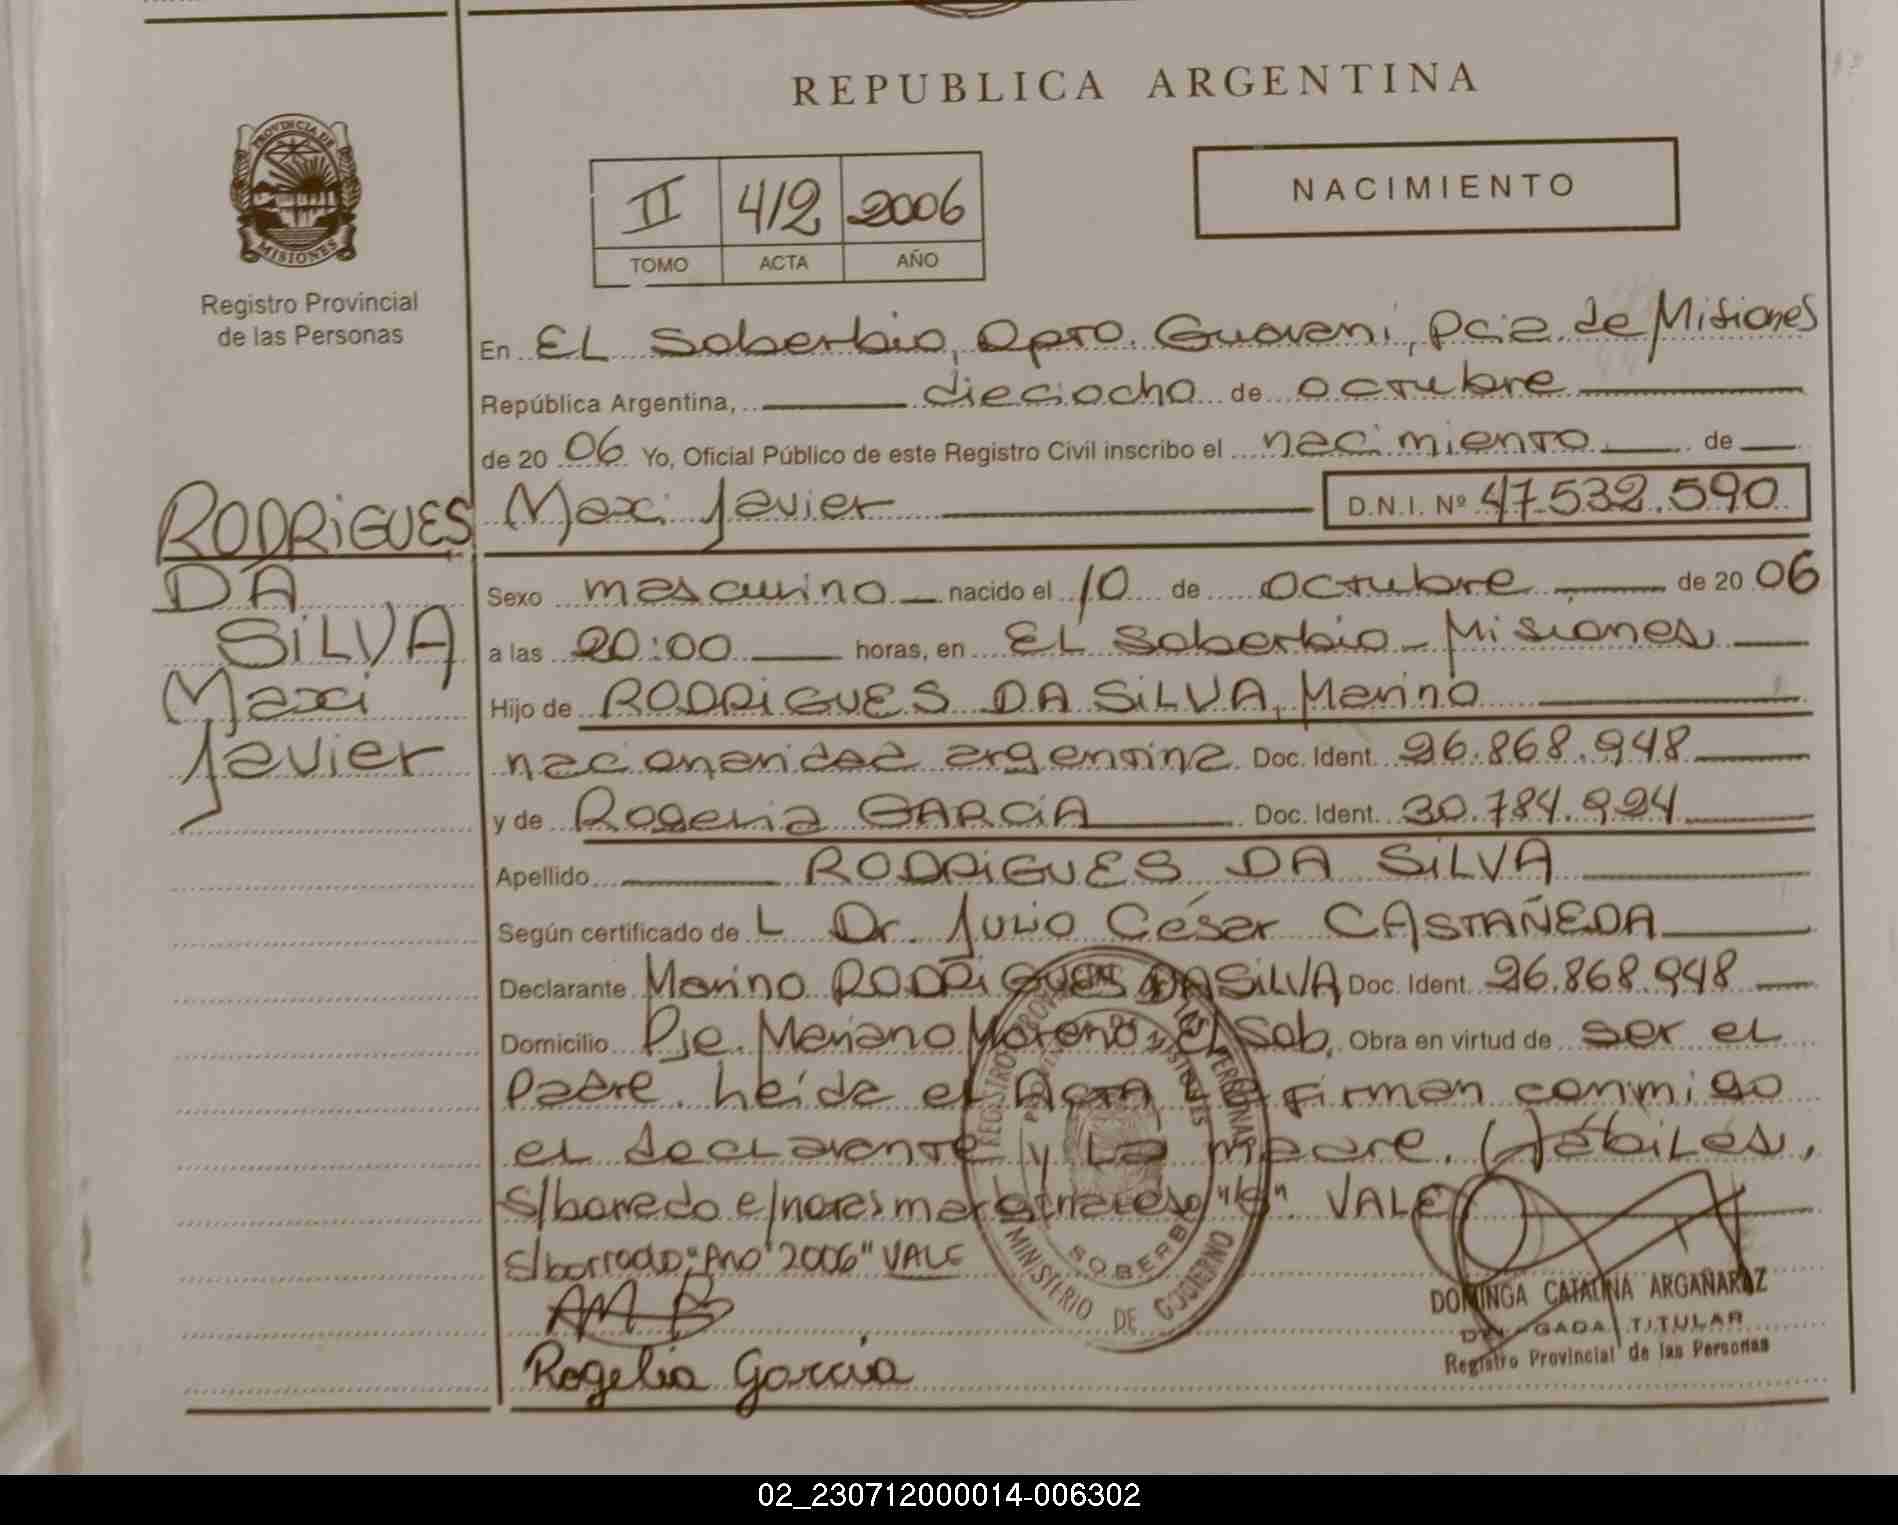 REPUBLICA ARGENTINA
PROVINCIA DE
MISIONES
Registro Provincial
de las Personas
II 412 2006
TOMO ACTA AÑO
NACIMIENTO
En EL Soberbio, Dpto. Guarani, Pcia. de Misiones
República Argentina, dieciocho de octubre
de 20 06 Yo, Oficial Público de este Registro Civil inscribo el nacimiento de
RODRiGUES
DA
SiLVA
Maxi
Javier
Maxi Javier D.N.I. Nº 47.532.590
Sexo masculino nacido el 10 de octubre de 20 06
a las 20:00 horas, en EL Soberbio - Misiones
Hijo de RODRiGUES DA SiLVA, Marino
nacionalidad argentina Doc. Ident. 26.868.948
y de Rogelia GARCiA Doc. Ident. 30.784.924
Apellido RODRiGUES DA SiLVA
Según certificado de L Dr. Julio César CASTAÑEDA
Declarante Marino RODRiGUES DA SiLVA Doc. Ident. 26.868.948
Domicilio Pje. Mariano Moreno, El Sob. Obra en virtud de ser el
Padre. Leída el Acta La firman conmigo
el declarante y La madre. Hábiles,
S/borrado e/notas marginales VALE
S/borrado "Año 2006" VALE
Rogelia Garcia
REGISTRO PROVINCIAL DE LAS PERSONAS
PROVINCIA DE MISIONES
SOBERBIO
MINISTERIO DE GOBIERNO
DOMINGA CATALINA ARGAÑARAZ
DELEGADA TITULAR
Registro Provincial de las Personas
02_230712000014-006302